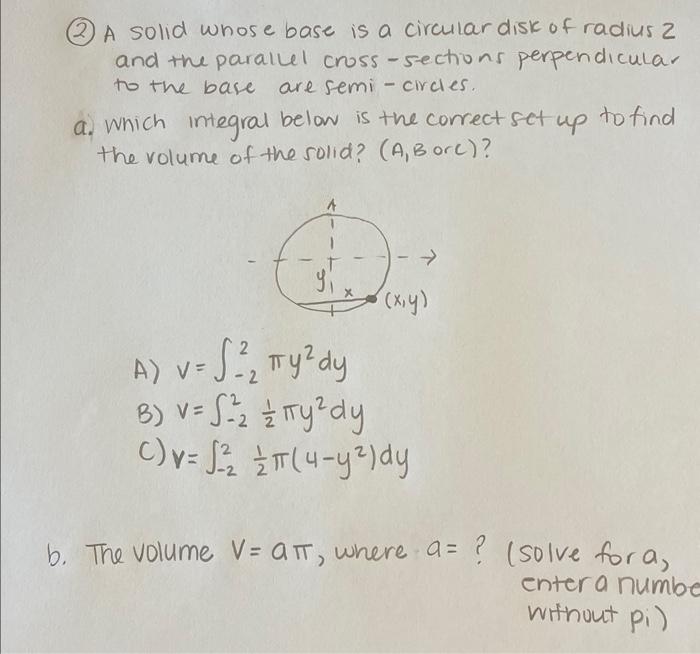 ② A solid whose base is a circular disk of radius 2
and the parallel cross-sections perpendicular
to the base are semi-circles.
a. which integral below is the correct set up to find
the volume of the solid? (A, B or C)?
y
x
(x,y)
A) V = ∫_{-2}^{2} πy² dy
B) V = ∫_{-2}^{2} ½ πy² dy
C) V = ∫_{-2}^{2} ½ π(4-y²) dy
b. The volume V = aπ, where a = ? (solve for a,
enter a numbe
without pi)